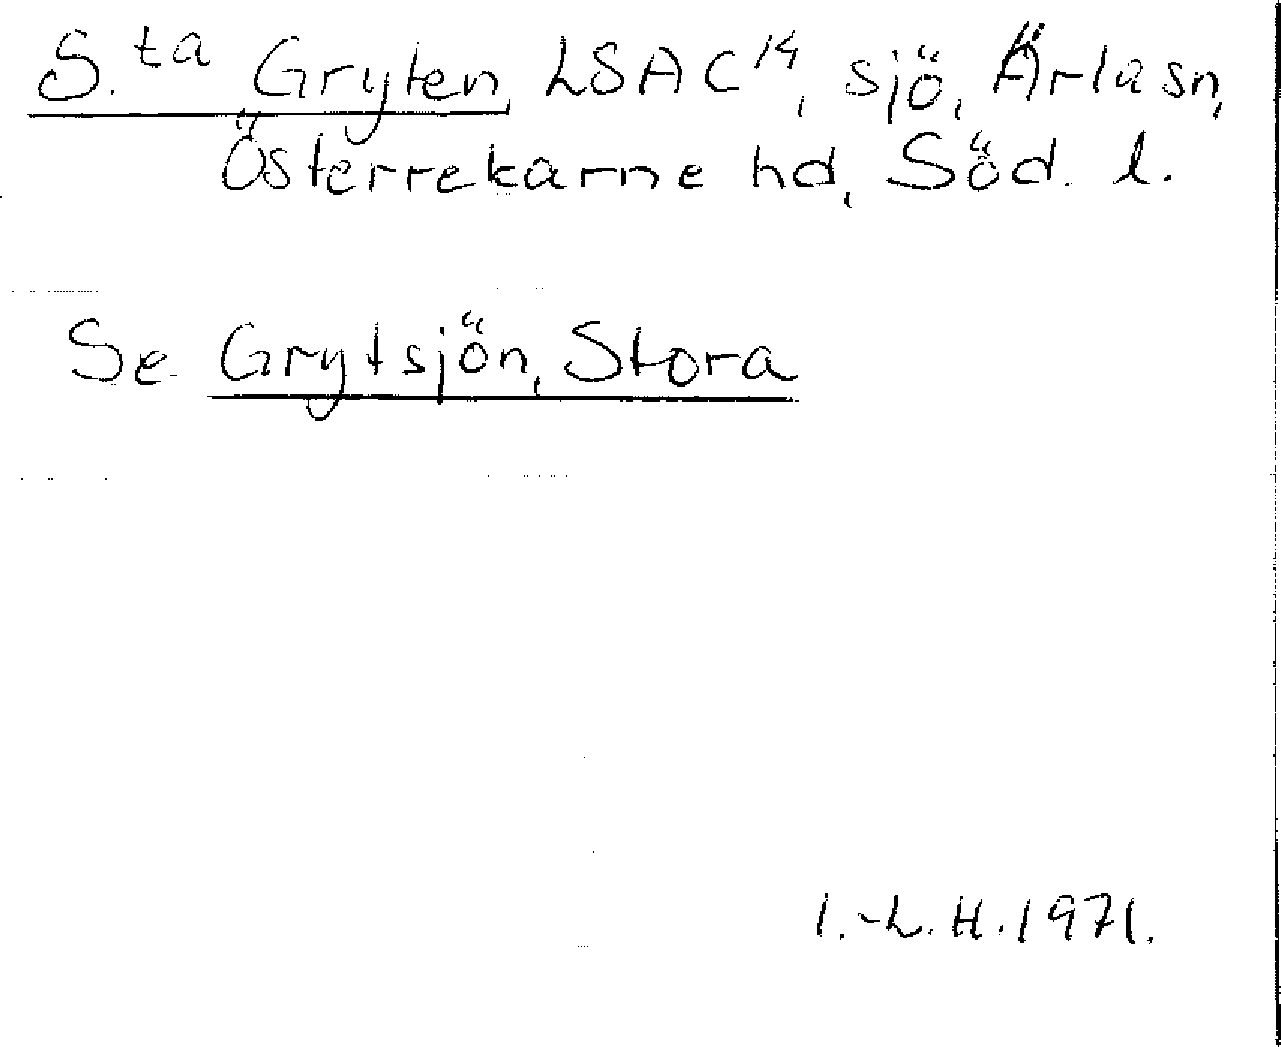 S.ta Gryten LSA C14, sjö, Ärla sn,
Österrekarne hd, Söd. l.
Se Grytsjön, Stora
I.-L. H. 1971.